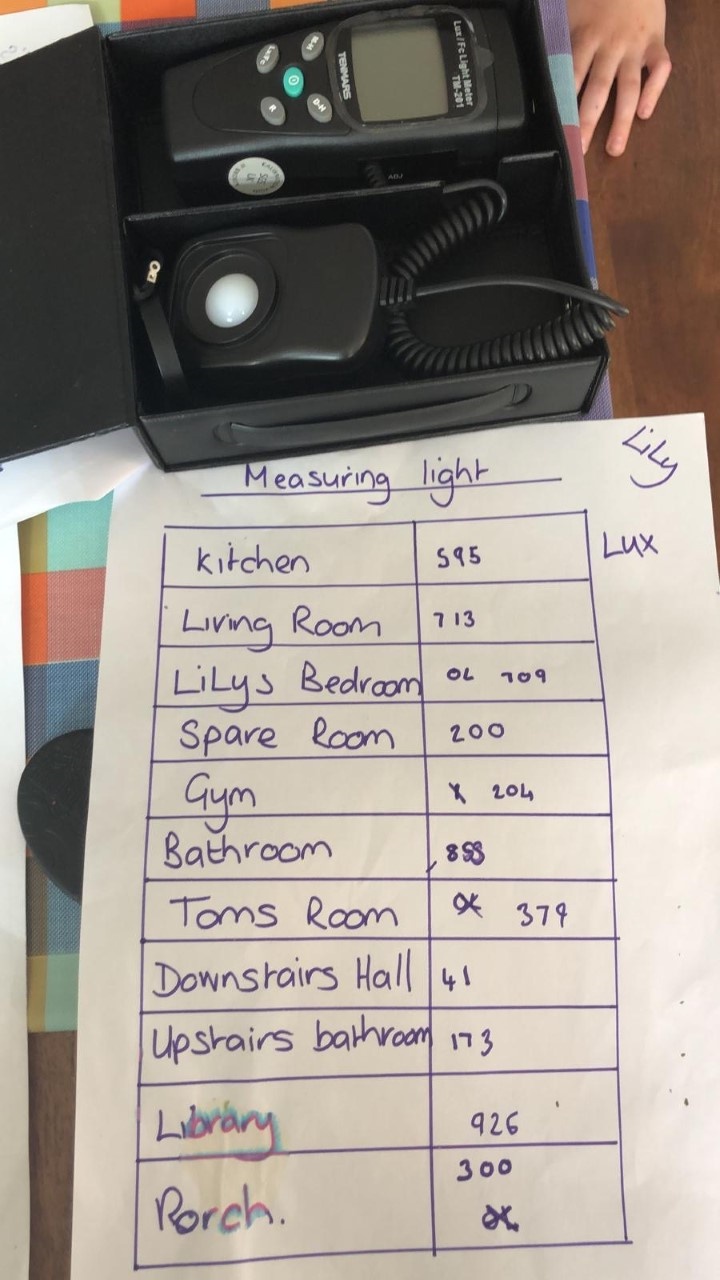 Lux/Fc Light Meter
TM-201
TENMARS
R
D-H
ADJ
Measuring light
Lily
Lux
Kitchen 595
Living Room 713
Lilys Bedroom OL 709
Spare Room 200
Gym 204
Bathroom
Toms Room 379
Downstairs Hall 41
Upstairs bathroom 173
Library 926
Porch. 300